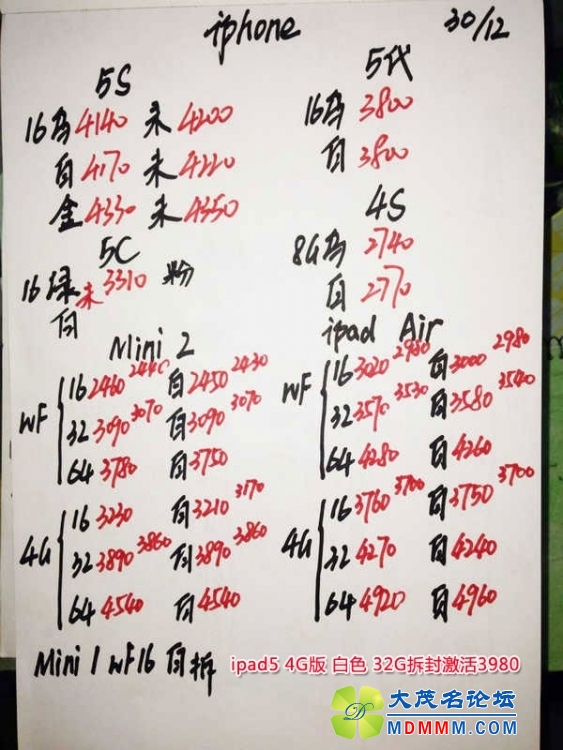 iphone 30/12
5S
16为 4140 未 4200
白 4170 未 4220
金 4330 未 4350
5C
16绿 未 3310 粉
白
5代
16为 3800
白 3800
4S
8G为 2740
白 2770
Mini 2
WF
16 2460 2440 白 2450 2430
32 3090 3070 白 3090 3070
64 3780 白 3750
4G
16 3230 白 3210 3170
32 3890 3860 白 3890 3860
64 4540 白 4540
ipad Air
WF
16 3020 2980 白 3000 2980
32 3570 3530 白 3580 3540
64 4280 白 4260
4G
16 3760 3700 白 3750 3700
32 4270 白 4240
64 4920 白 4960
Mini 1 WF16 白拆
ipad5 4G版 白色 32G拆封激活3980
大茂名论坛
MDMMM.COM